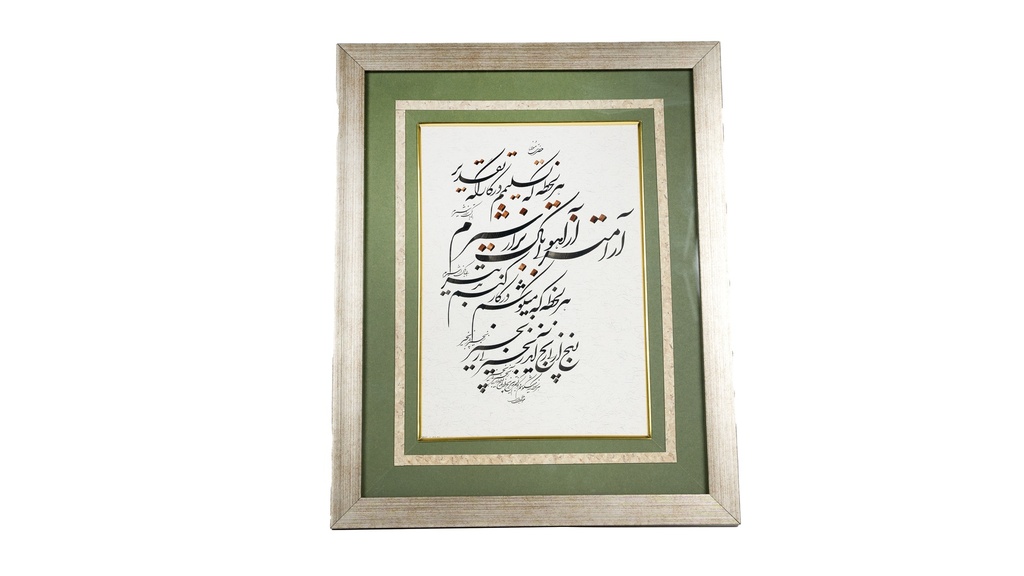 حضرت مولانا
هر لحظه که تسلیمم در کارگه تقدیر
آرامتر از آهو بی باک تر از شیرم
هر لحظه که میکوشم در کار کنم تدبیر
رنج از پی رنج آید زنجیر پی زنجیر